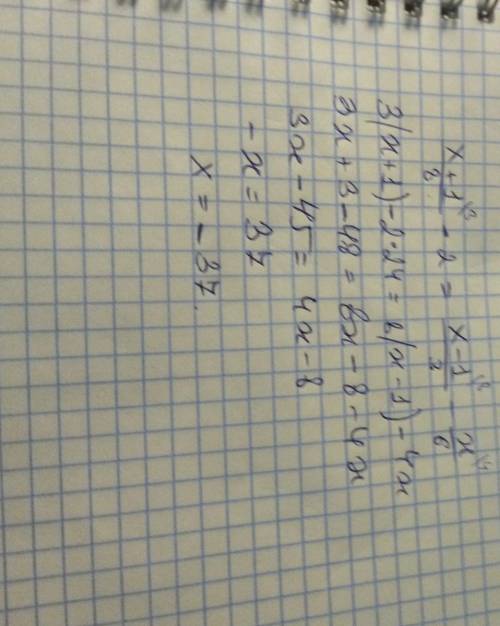 x+1/8 - 2 = x-1/3 - x/6
3(x+1)-2·24 = 8(x-1)-4x
3x+3-48 = 8x-8-4x
3x-45 = 4x-8
-x = 37
x = -37.